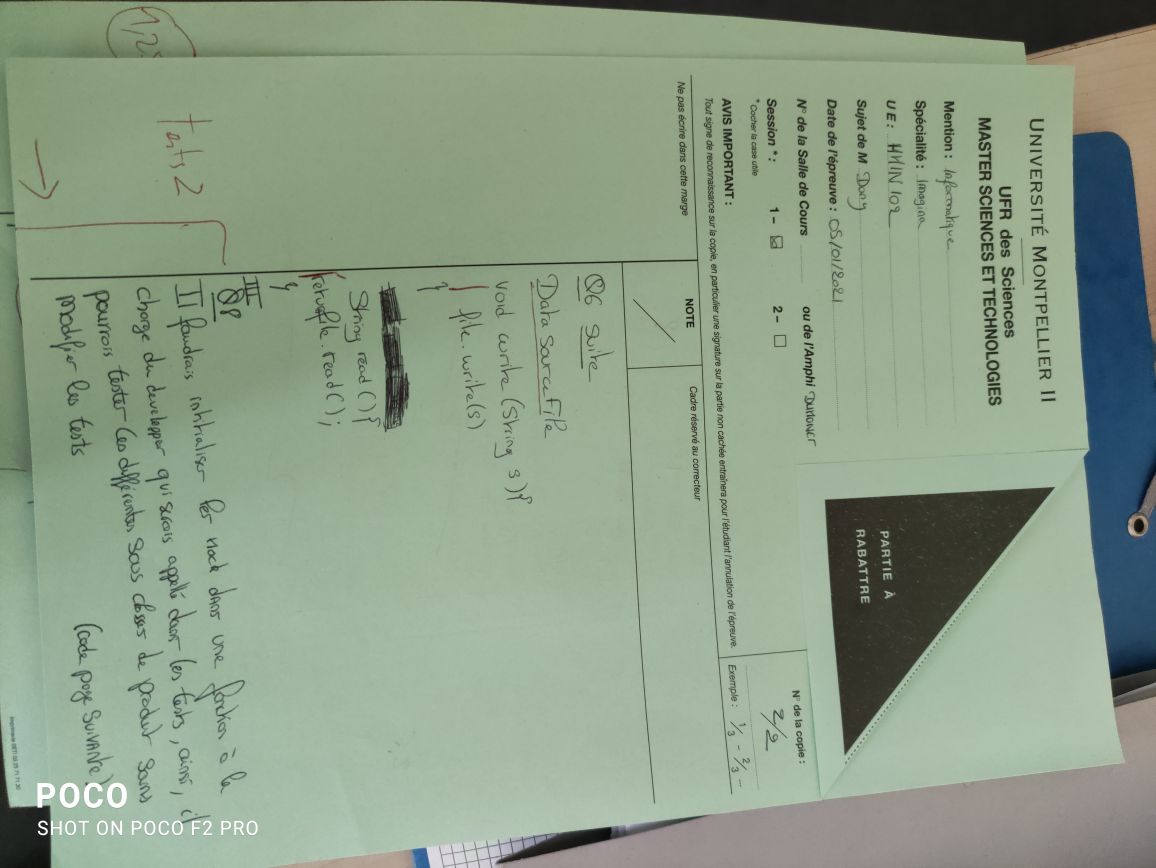 UNIVERSITÉ MONTPELLIER II
UFR des Sciences
MASTER SCIENCES ET TECHNOLOGIES
Mention : Informatique
Spécialité : Imagina
UE : HMIN 102
Sujet de M Dony
Date de l'épreuve : 05/01/2021
N° de la Salle de Cours ou de l'Amphi DUMONTET
Session * : 1 – 2 –
* Cocher la case utile
PARTIE À
RABATTRE
N° de la copie :
2/2
Exemple : 1/3 - 2/3 ...
AVIS IMPORTANT :
Tout signe de reconnaissance sur la copie, en particulier une signature sur la partie non cachée entraînera pour l'étudiant l'annulation de l'épreuve.
Ne pas écrire dans cette marge
NOTE
Cadre réservé au correcteur
Q6 suite
Data Source File
void write (String s){
file.write(s)
}
String read (){
file.read();
}
III
Q8
Il faudrais inhitialiser les mock dans une fonction à la
charge du developper qui serais appellé dans les tests, ainsi, il
pourrois tester les différentes sous classes de produit sans
modifier les tests
(code page suivante)
tests 2
1,25
POCO
SHOT ON POCO F2 PRO